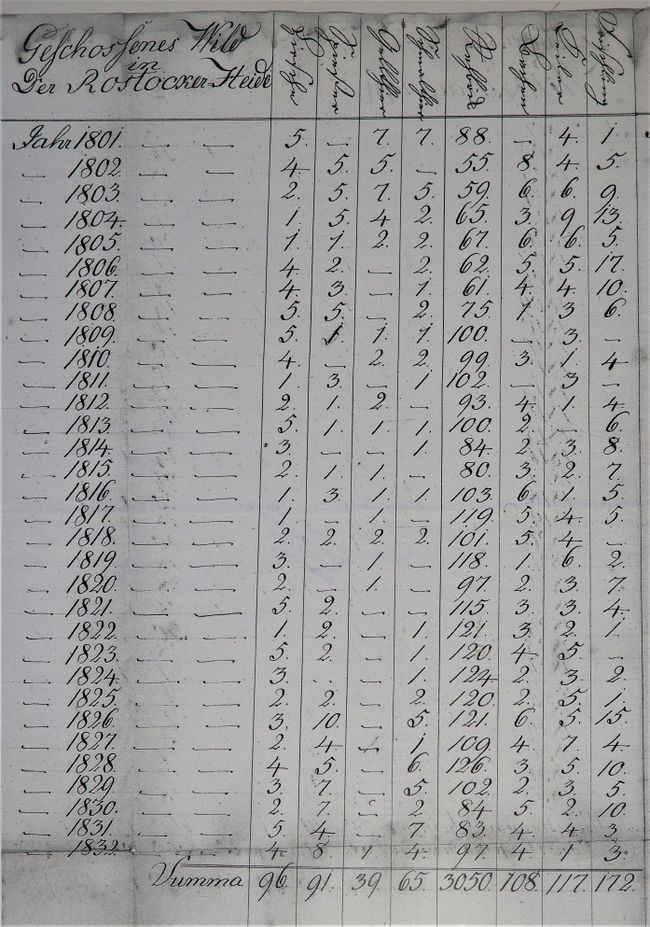 Geschossenes Wild
in
Der Rostocker Heide
Hirsche Rehbock Hasen
Jahr 1801. — — 5. — 7. 7. 88. — 4. 1.
— 1802. — — 4. 5. 5. — 55. 8. 4. 5.
— 1803. — — 2. 5. 7. 5. 59. 6. 6. 9.
— 1804. — — 1. 5. 4. 2. 65. 3. 9. 13.
— 1805. — — 1. 1. 2. 2. 67. 6. 6. 5.
— 1806. — — 4. 2. — 2. 62. 5. 5. 17.
— 1807. — — 4. 3. — 1. 61. 4. 4. 10.
— 1808. — — 5. 5. — 2. 75. 1. 3 6.
— 1809. — — 5. 1 1. 1. 100. — 3. —
— 1810. — — 4. — 2. 2. 99. 3. 1. 4
— 1811. — — 1. 3. — 1 102. — 3 —
— 1812. — — 2. 1. 2. — 93. 4. 1. 4.
— 1813. — — 5. 1. 1. 1. 100. 2. — 6.
— 1814. — — 3. — — 1. 84. 2. 3. 8.
— 1815. — — 2. 1. 1. — 80. 3. 2. 7.
— 1816. — — 1. 3. 1. 1. 103. 6. 1. 5.
— 1817. — — 1. — 1. — 119. 5. 4. 5.
— 1818. — — 2. 2. 2. 2. 101. 5. 4. —
— 1819. — — 3. — 1. — 118. 1. 6. 2.
— 1820. — — 2. — 1. — 97. 2. 3. 7.
— 1821. — — 5. 2. — — 115. 3. 3. 4.
— 1822. — — 1. 2. — 1. 121. 3. 2. 1.
— 1823. — — 5. 2. — 1. 120. 4. 5. —
— 1824. — — 3. — — 1. 124. 2. 3. 2.
— 1825. — — 2. 2. — 2. 120. 2. 5. 1.
— 1826. — — 3. 10. — 5. 121. 6. 5. 15.
— 1827. — — 2. 4. — 1 109. 4. 7. 4.
— 1828. — — 4. 5. — 6. 126. 3. 5. 10.
— 1829. — — 3. 7. — 5. 102. 2. 3. 5.
— 1830. — — 2. 7. — 2 84. 5. 2. 10.
— 1831. — — 5. 4. — 7. 83. 4. 4. 3.
— 1832. — — 4. 8 1 4. 97. 4. 1 3.
Summa 96. 91. 39. 65. 3050. 108. 117. 172.